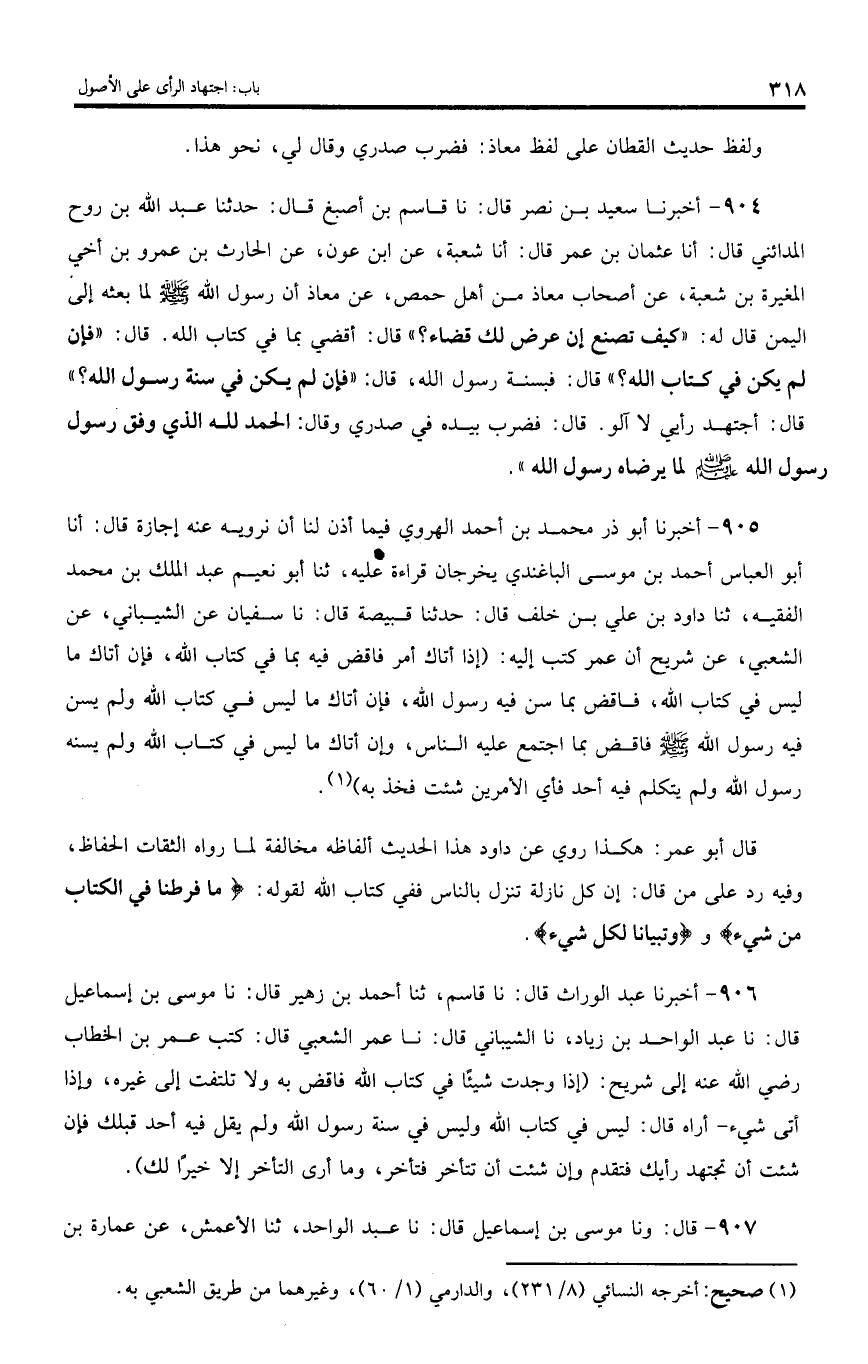 ٣١٨ باب: اجتهاد الرأى على الأصول
ولفظ حديث القطان على لفظ معاذ: فضرب صدري وقال لي، نحو هذا.
٩٠٤- أخبرنا سعيد بن نصر قال: نا قاسم بن أصبغ قال: حدثنا عبد الله بن روح
المدائني قال: أنا عثمان بن عمر قال: أنا شعبة، عن ابن عون، عن الحارث بن عمرو بن أخي
المغيرة بن شعبة، عن أصحاب معاذ من أهل حمص، عن معاذ أن رسول الله ﷺ لما بعثه إلى
اليمن قال له: «كيف تصنع إن عرض لك قضاء؟» قال: أقضي بما في كتاب الله. قال: «فإن
لم يكن في كتاب الله؟» قال: فبسنة رسول الله، قال: «فإن لم يكن في سنة رسول الله؟»
قال: أجتهد رأيي لا آلو. قال: فضرب بيده في صدري وقال: الحمد لله الذي وفق رسول
رسول الله ﷺ لما يرضاه رسول الله».
٩٠٥- أخبرنا أبو ذر محمد بن أحمد الهروي فيما أذن لنا أن نرويه عنه إجازة قال: أنا
أبو العباس أحمد بن موسى الباغندي يخرجان قراءة عليه، ثنا أبو نعيم عبد الملك بن محمد
الفقيه، ثنا داود بن علي بن خلف قال: حدثنا قبيصة قال: نا سفيان عن الشيباني، عن
الشعبي، عن شريح أن عمر كتب إليه: (إذا أتاك أمر فاقض فيه بما في كتاب الله، فإن أتاك ما
ليس في كتاب الله، فاقض بما سن فيه رسول الله، فإن أتاك ما ليس في كتاب الله ولم يسن
فيه رسول الله ﷺ فاقض بما اجتمع عليه الناس، وإن أتاك ما ليس في كتاب الله ولم يسنه
رسول الله ولم يتكلم فيه أحد فأي الأمرين شئت فخذ به)(١).
قال أبو عمر: هكذا روي عن داود هذا الحديث ألفاظه مخالفة لما رواه الثقات الحفاظ،
وفيه رد على من قال: إن كل نازلة تنزل بالناس ففي كتاب الله لقوله: ﴿ ما فرطنا في الكتاب
من شيء﴾ و ﴿وتبيانا لكل شيء﴾.
٩٠٦- أخبرنا عبد الوراث قال: نا قاسم، ثنا أحمد بن زهير قال: نا موسى بن إسماعيل
قال: نا عبد الواحد بن زياد، نا الشيباني قال: نا عمر الشعبي قال: كتب عمر بن الخطاب
رضي الله عنه إلى شريح: (إذا وجدت شيئًا في كتاب الله فاقض به ولا تلتفت إلى غيره، وإذا
أتى شيء- أراه قال: ليس في كتاب الله وليس في سنة رسول الله ولم يقل فيه أحد قبلك فإن
شئت أن تجتهد رأيك فتقدم وإن شئت أن تتأخر فتأخر، وما أرى التأخر إلا خيرًا لك).
٩٠٧- قال: ونا موسى بن إسماعيل قال: نا عبد الواحد، ثنا الأعمش، عن عمارة بن
(١) صحيح: أخرجه النسائي (٨/ ٢٣١)، والدارمي (١/ ٦٠)، وغيرهما من طريق الشعبي به.